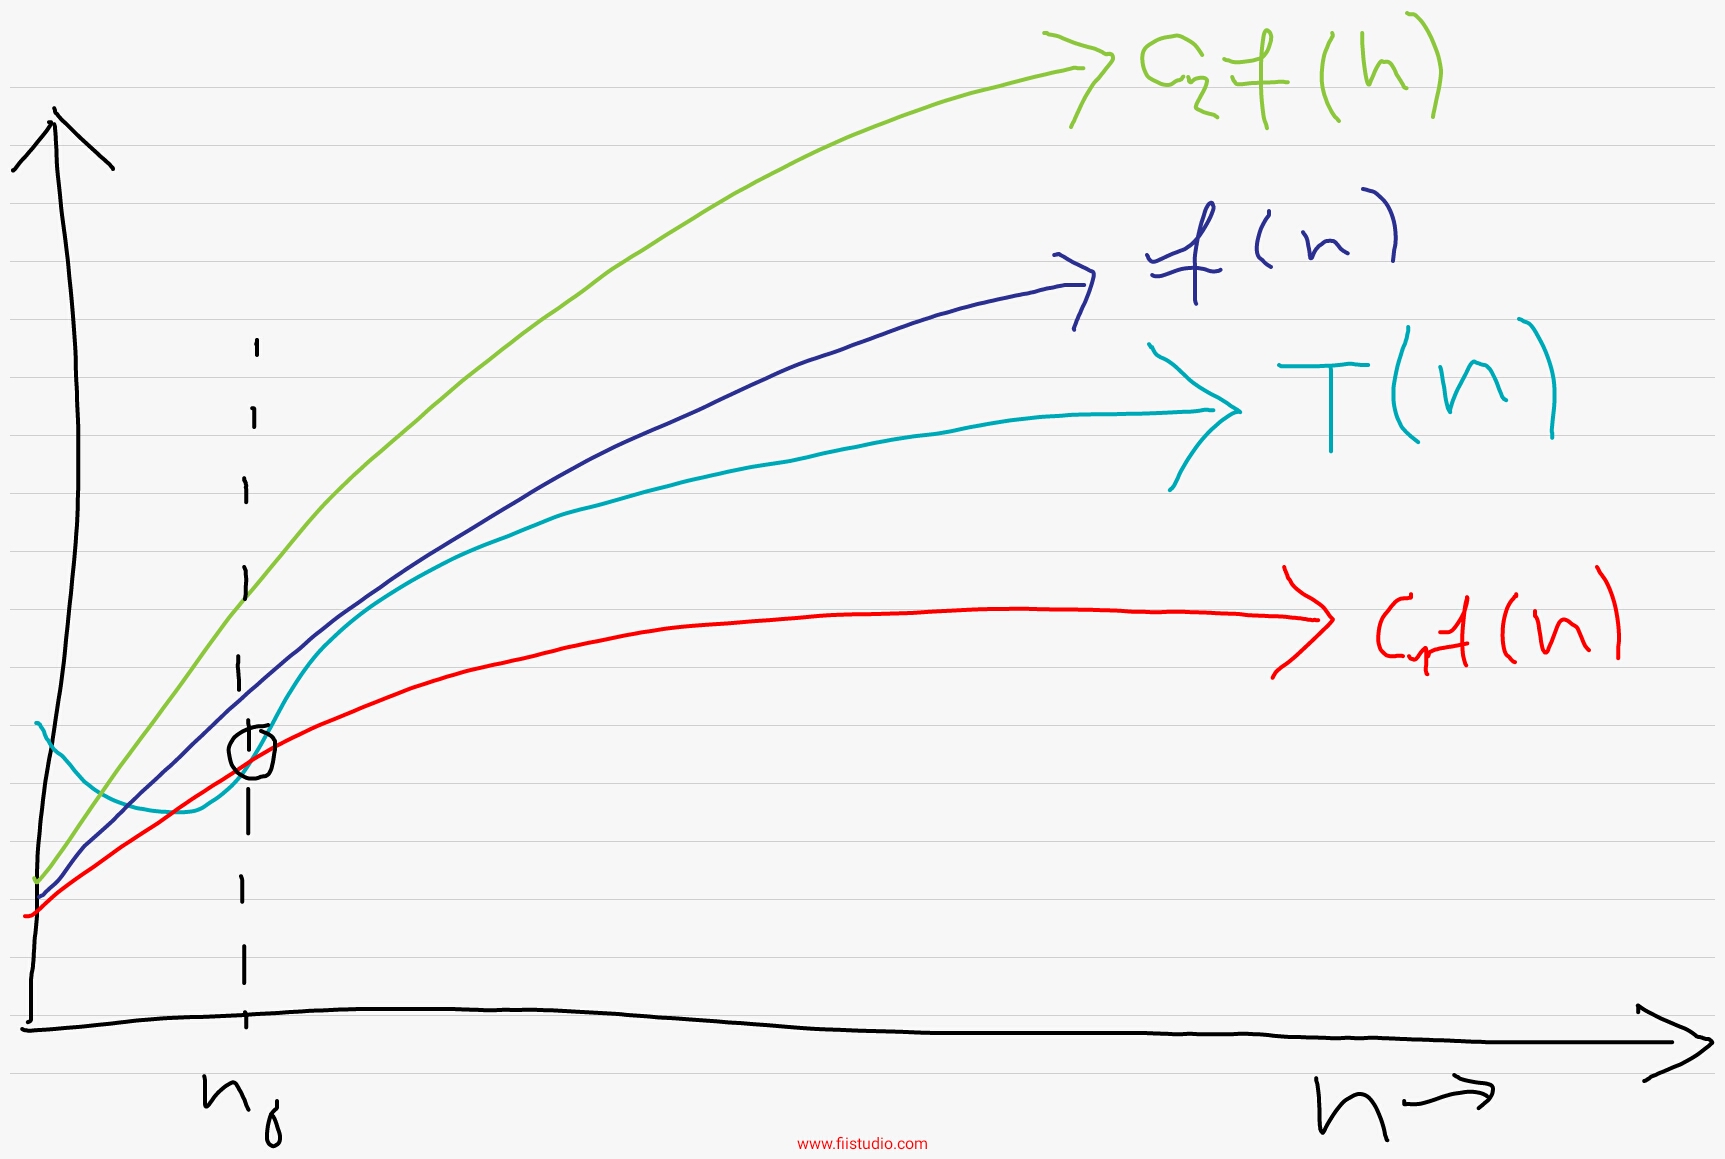 C₂f(n)
f(n)
T(n)
C₁f(n)
n₀
n→
www.fiistudio.com